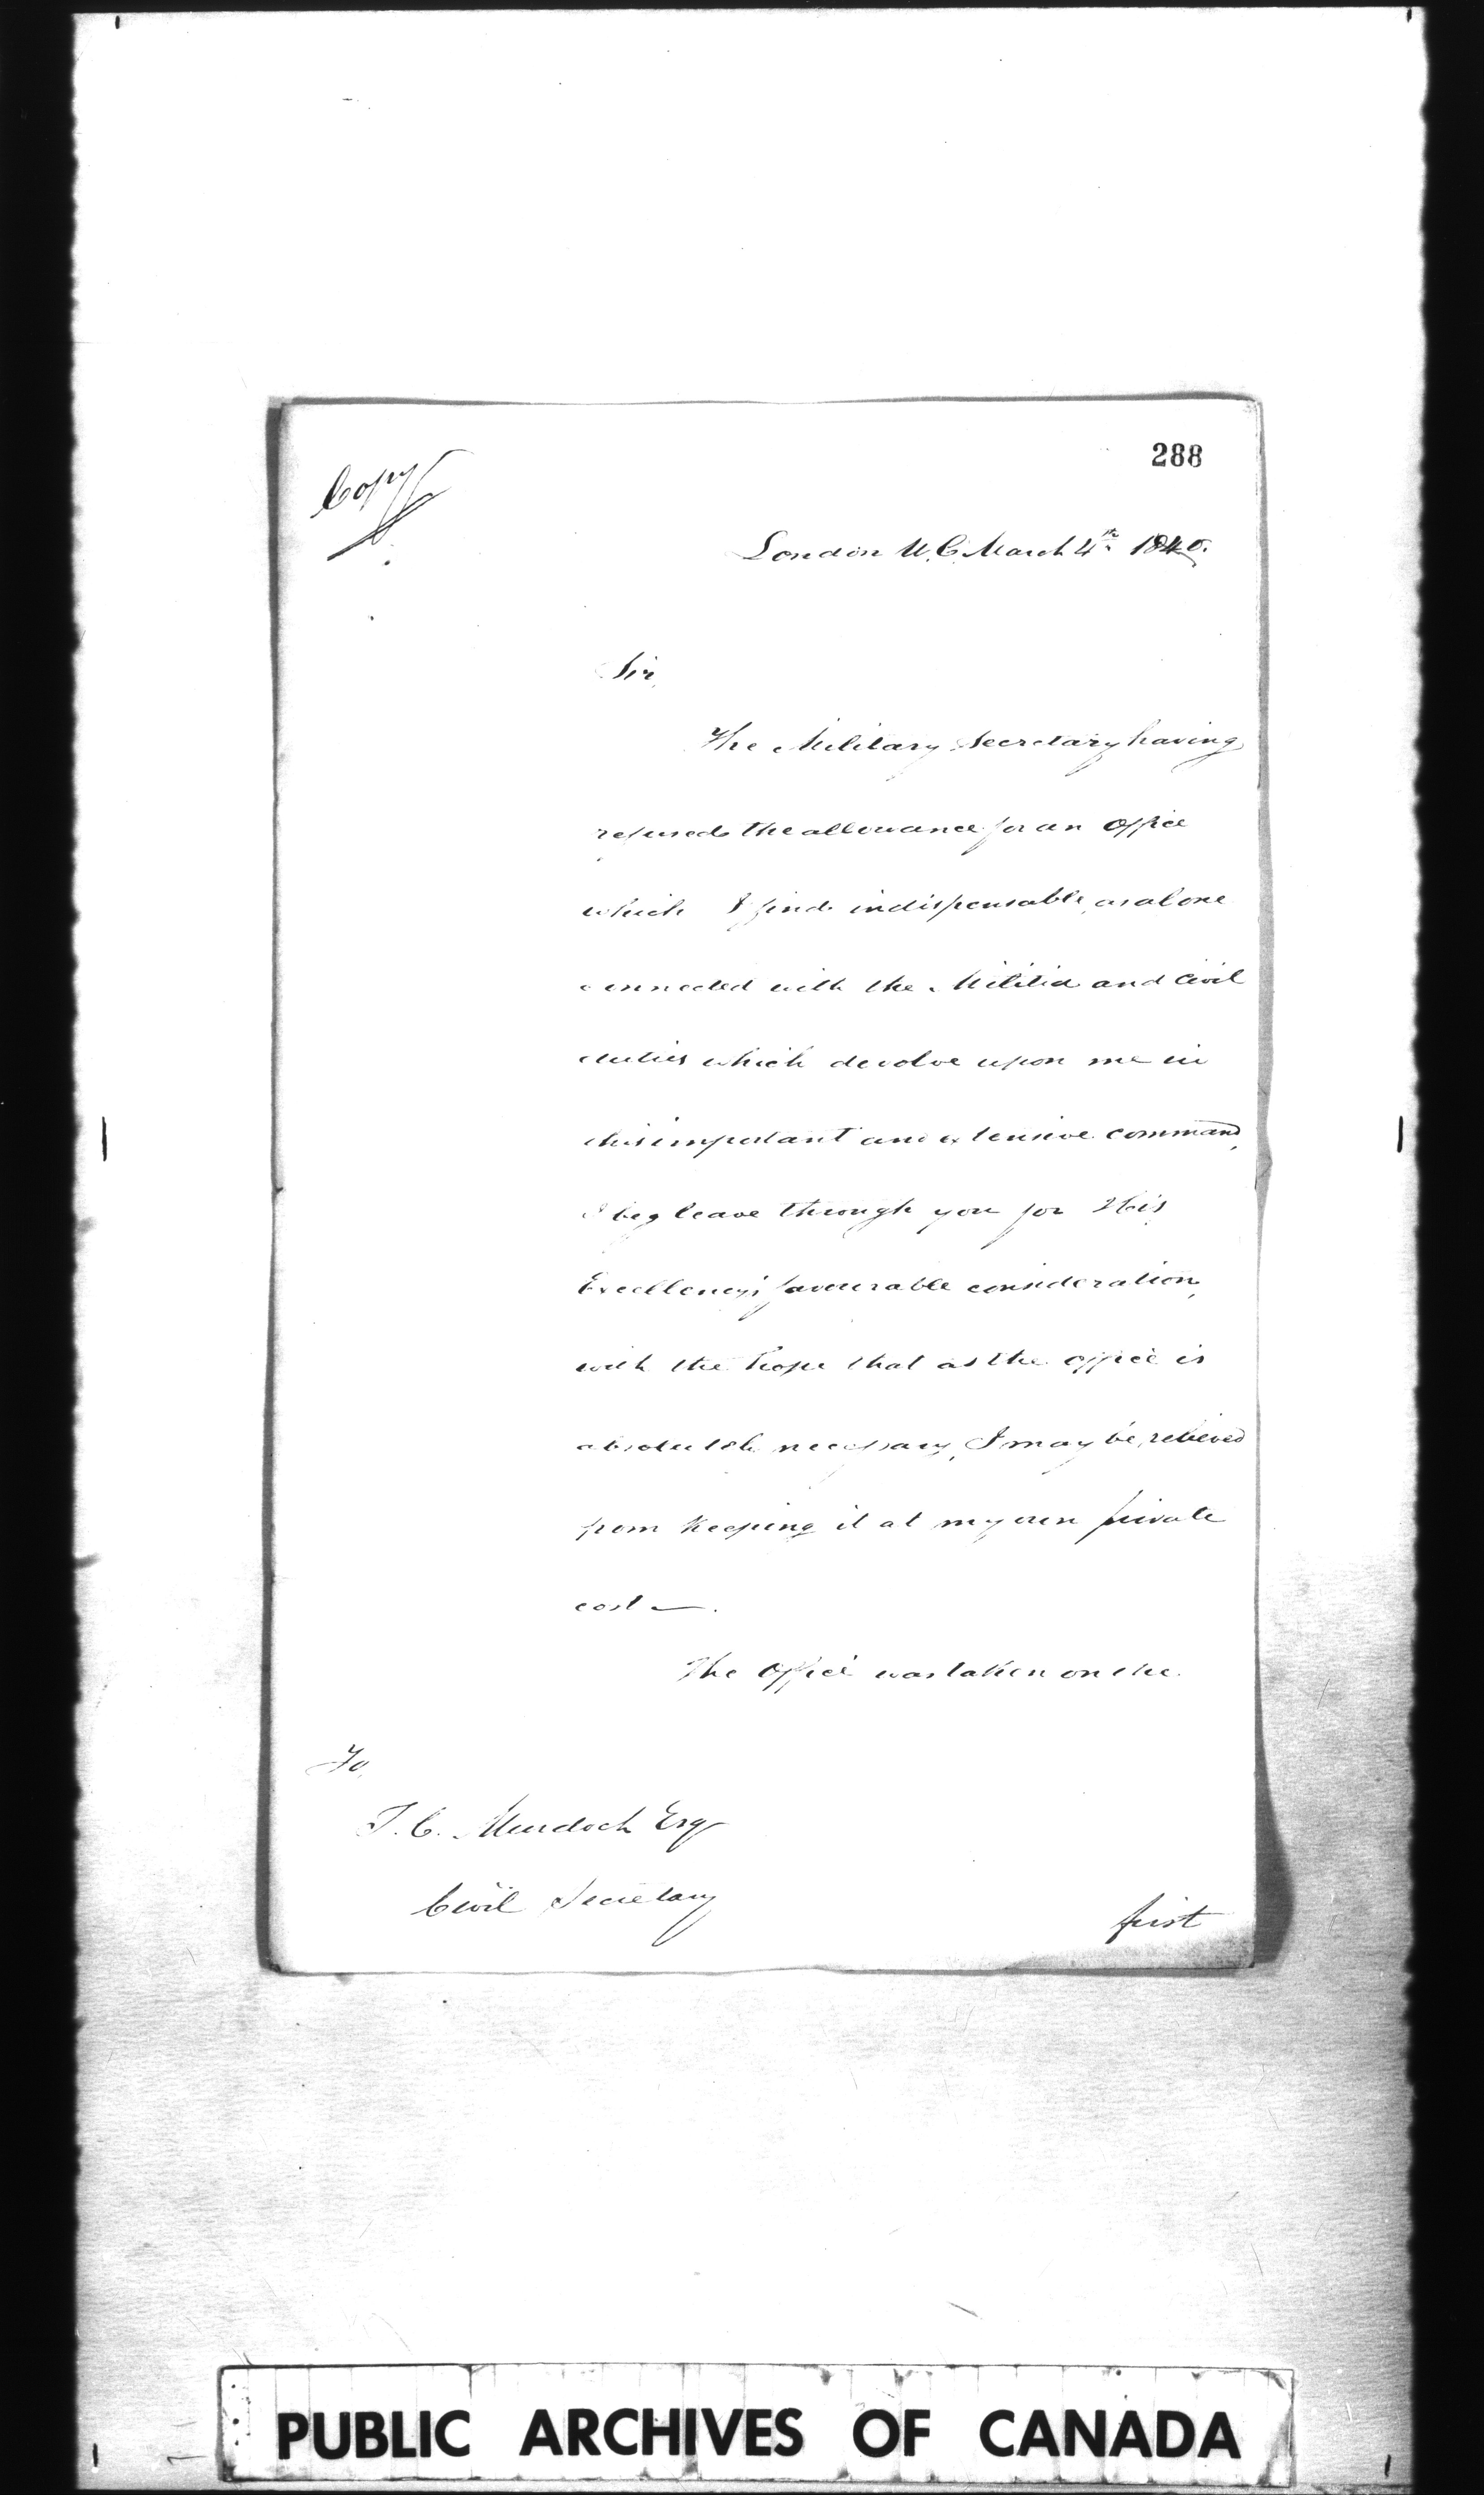 288
Copy
London U.C. March 4th 1840.
Sir,
The Military Secretary having
refused the allowance for an Office
which I find indispensable, as alone
connected with the Militia and Civil
duties which devolve upon me in
this important and extensive command,
I beg leave through you for His
Excellency's favourable consideration,
with the hope that as the office is
absolutely necessary, I may be relieved
from keeping it at my own private
cost —.
The Office was taken on the
To,
T. C. Murdoch Esq
Civil Secretary
first
PUBLIC ARCHIVES OF CANADA